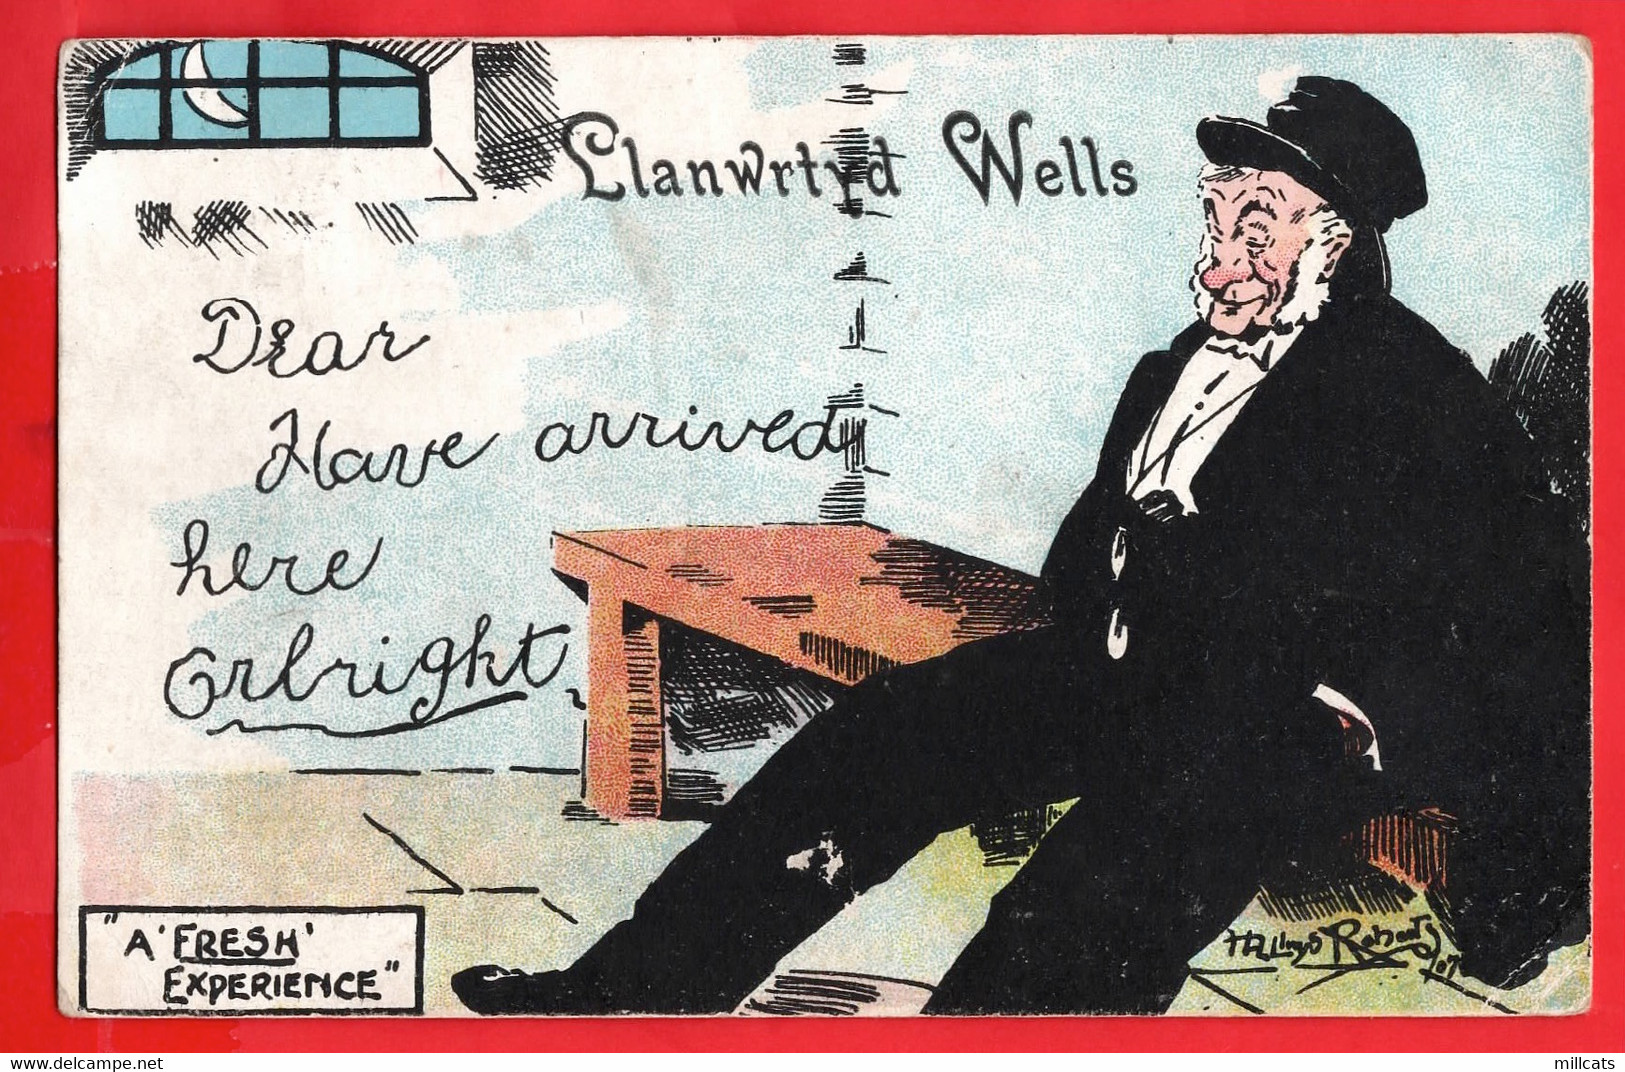 Llanwrtyd Wells
Dear
Have arrived
here
Orlright
"A 'FRESH'
EXPERIENCE"
H Lloyd Roberts
07
millcats